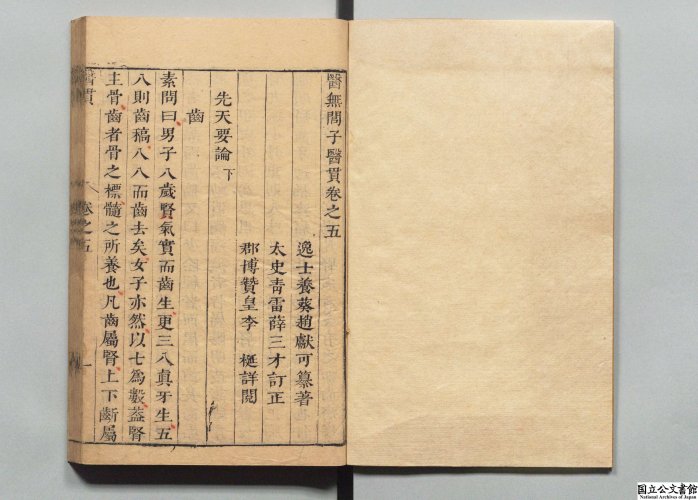 醫無閭子醫貫卷之五
逸士養葵趙獻可纂著
太史靑雷薛三才訂正
郡博贊皇李 梴詳閱
先天要論 下
齒
素問曰男子八歲腎氣實而齒生更三八眞牙生五
八則齒稿八八而齒去矣女子亦然以七爲數葢腎
主骨齒者骨之標髓之所養也凡齒屬腎上下齗屬
醫貫
卷之五
一
国立公文書館
National Archives of Japan